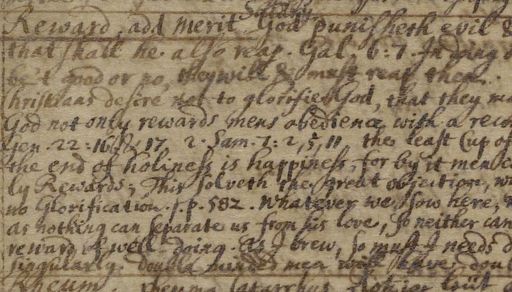 Reward, add merit. God punisheth evil &
that shall he also reap. Gal. 6:7. In doing
be't good or no, they will & must reap the
Christians desire not to glorifie God, that they ma
God not only rewards mens obedience with a reco
Gen. 22:16, 17, 2. Sam. 7: 2, 5, 11 the least Cup of
the end of holiness is happiness, for by it men
ly Rewards; This solveth the great objection,
no Glorification. p. 582. Whatever we sow here,
as nothing can separate us from his love, so neither can
reward of well-doing. As I brew, so must I needs d
singularly. double minded men will have dou
Rheum.